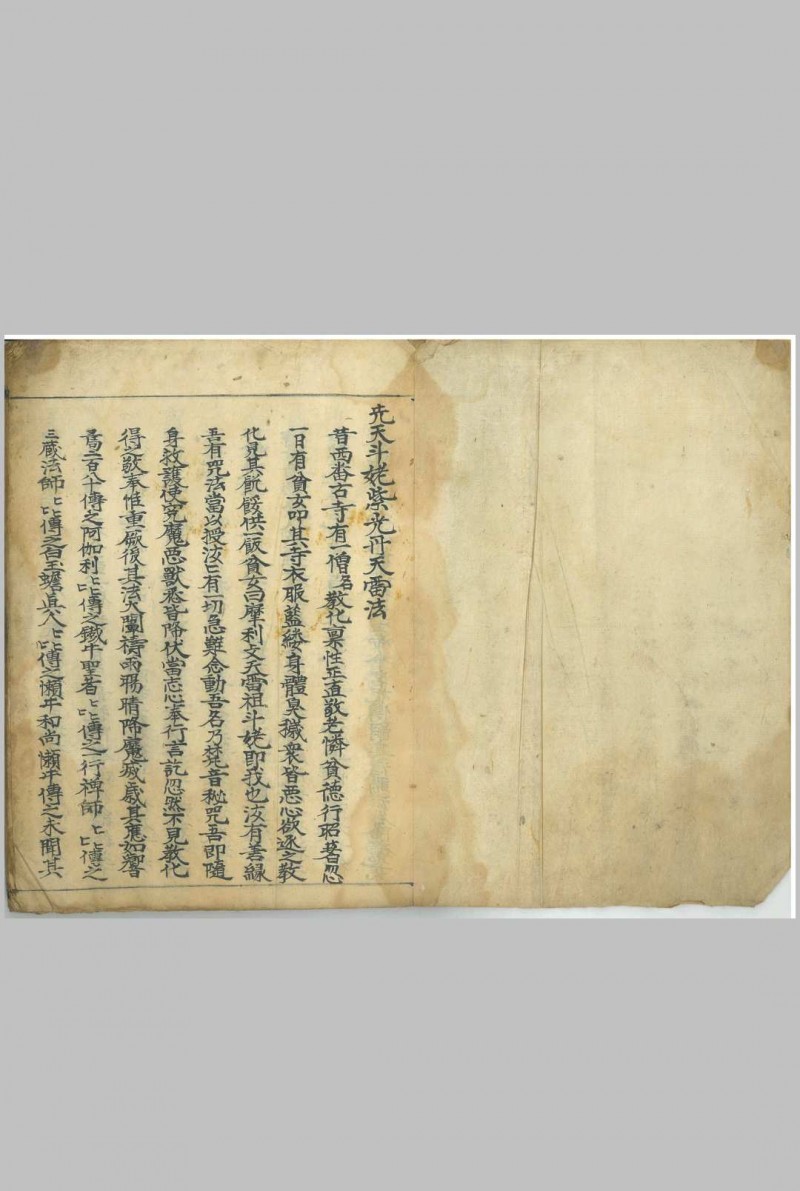 先天斗姥紫光丹天雷法
昔西番古寺有一僧名教化禀性正直敬老憐貧德行昭著忽
一日有貧女叩其寺衣服藍縷身體臭穢衆皆惡心欲逐之教
化見其飢餒供一飯貧女曰摩利攴天雷祖斗姥即我也汝有善緣
吾有咒法當以授汝匕有一切急難念動吾名乃梵音秘咒吾即隨
身救護使穷魔惡獸悉皆降伏當志心奉行言訖忽然不見教化
得之欽奉惟重厥後其法大闡禱雨暘晴降魔滅其應如響
焉二百八十傳之阿伽利匕匕傳之鐵牛聖者匕匕傳之一行禅師匕匕傳之
三蔵法師匕匕傳之白玉蟾真人匕匕傳之懶牛和尚懶牛傳之未聞其